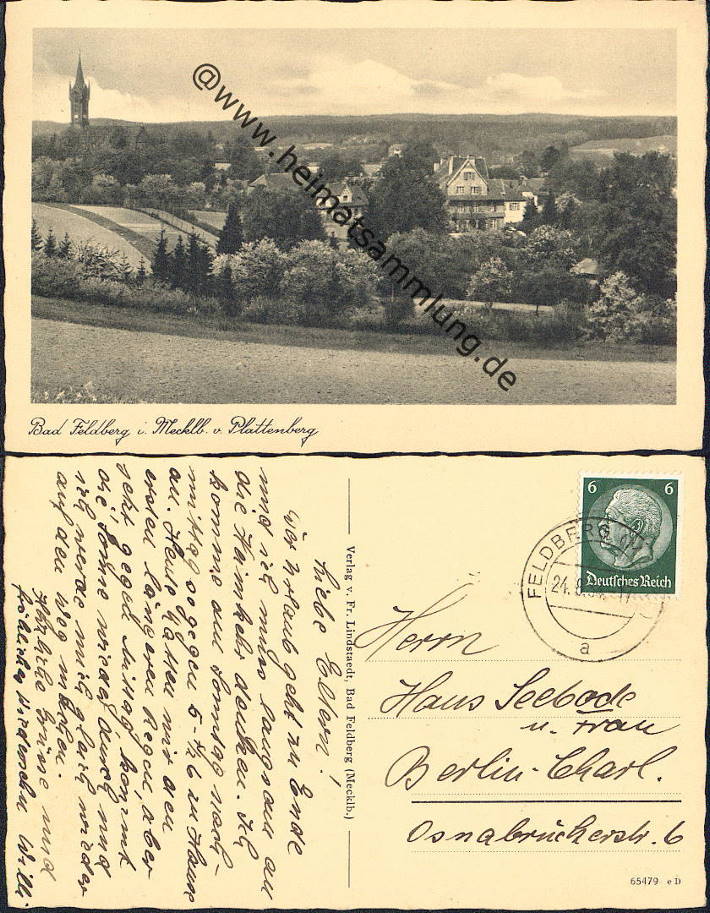 @www.heimatsammlung.de
Bad Feldberg i. Mecklb. v. Plattenberg
Liebe Eltern!
Der Urlaub geht zu Ende
und ich muss langsam an
die Heimkehr denken. Ich
komme am Sonntag nach-
mittag so gegen 5-½6 zu Hause
an. Heute hatten wir den
ersten längeren Regen, aber
jetzt gegen Mittag kommt
die Sonne wieder durch und
ich werde mich gleich wieder
auf den Weg machen.
Herzliche Grüsse und
fröhliches Wiedersehn Willi.
Verlag v. Fr. Lindstaedt, Bad Feldberg (Mecklb.)
6 6
Deutsches Reich
FELDBERG
24.8.
17
a
Herrn
Hans Seebode
u. Frau
Berlin-Charl.
Osnabrückerstr. 6
65479 e D